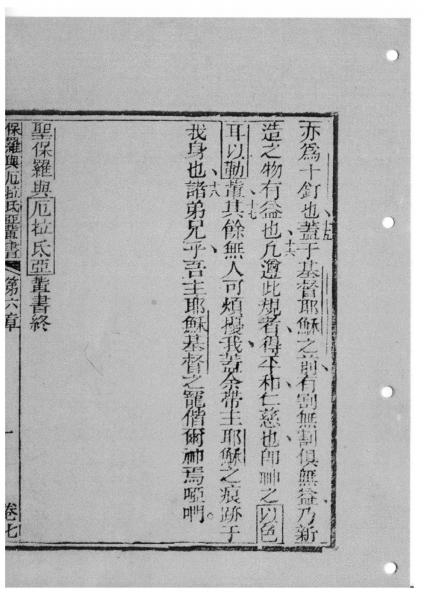 亦為十釘也十五蓋于基督耶穌之前有割無割俱無益乃新
造之物有益也十六凡遵此規者得平和仁慈也即神之以色
耳以勒輩十七其餘無人可煩擾我蓋余帶主耶穌之痕跡于
我身也十八諸弟兄乎吾主耶穌基督之寵偕爾神焉啞們。
聖保羅與厄拉氐亞輩書終
保羅與厄拉氐亞輩書 第六章 一 卷七